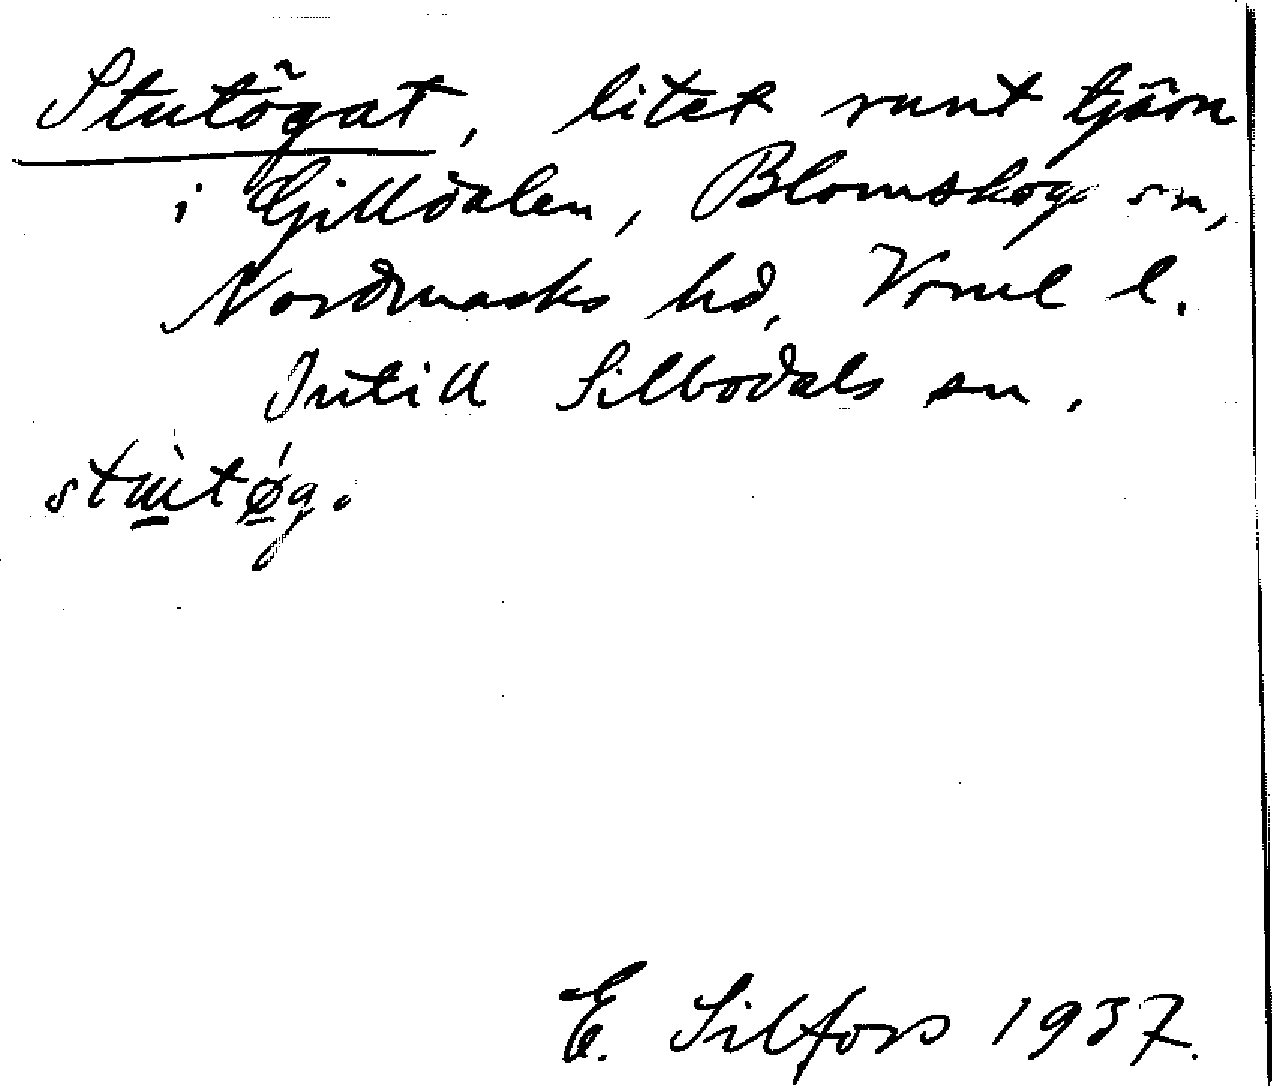 Stutögat, litet runt tjärn
i Gilldalen, Blomskogs sn,
Nordmarks hd, Vrml l.
Intill Silbodals sn.
E. Silfors 1937.